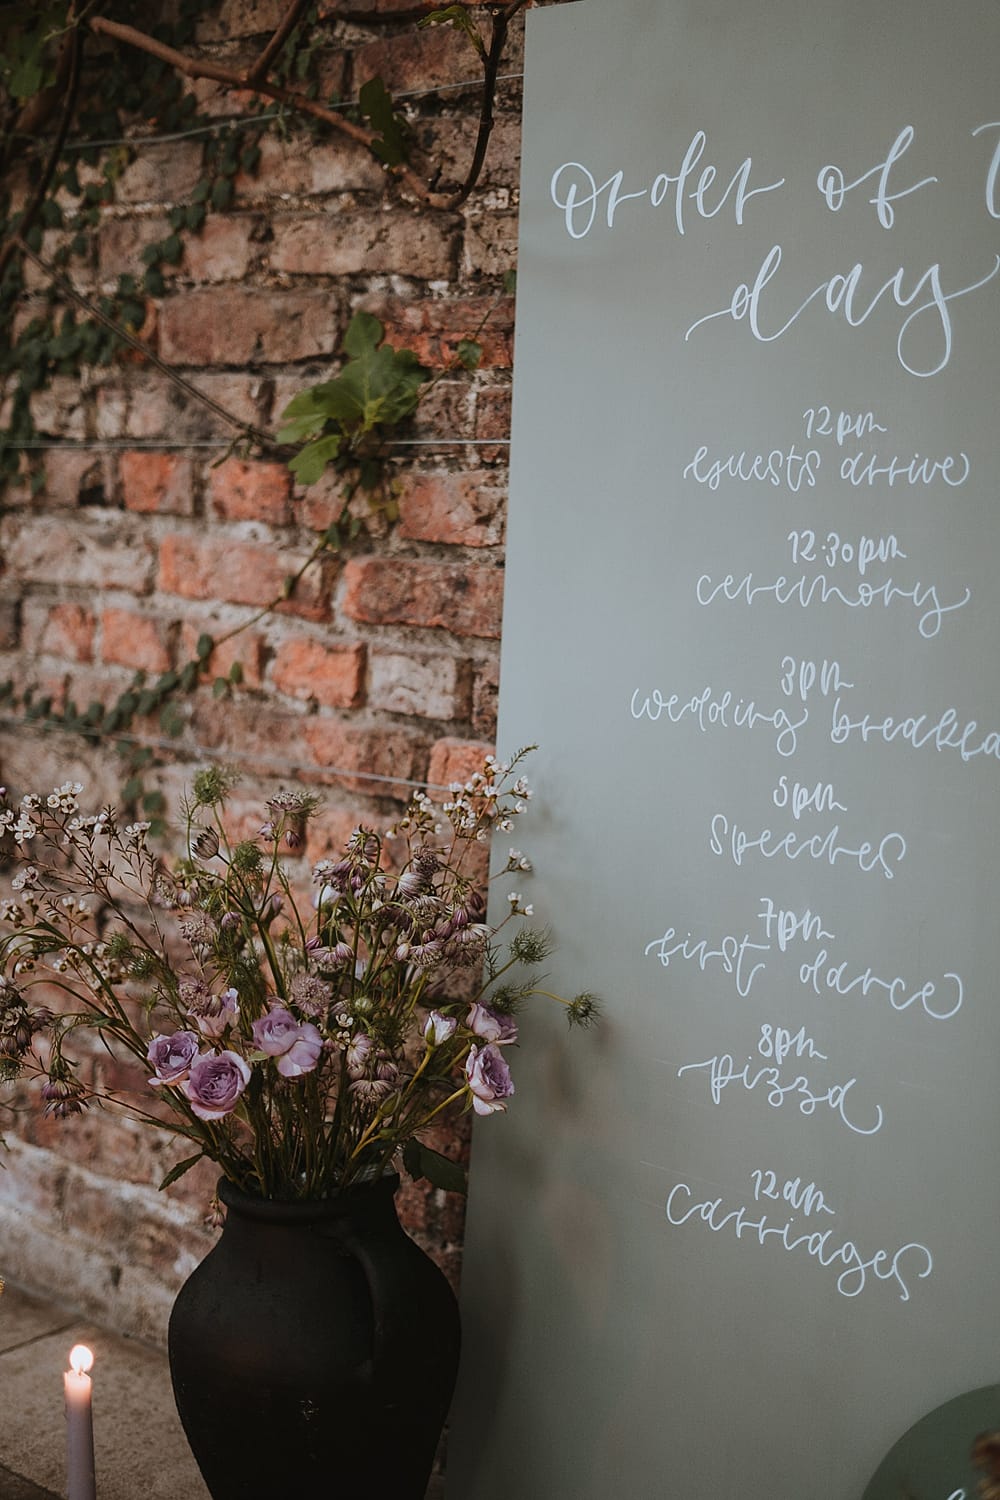 Order of T
day
12pm
Guests arrive
12:30pm
ceremony
3pm
wedding breakfa
5pm
Speeches
7pm
first dance
8pm
pizza
12am
Carriages